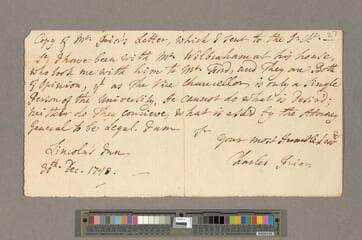 Copy of Mr. Price's Letter, which I sent to the
Sr I have been with Mr. Wilbraham at his house,
who took me with him to Mr. Ford, and They are Both
of Opinion, yt as The Vice Chancellor is only a single
Person of the University, he cannot do what is desired;
neither do They conceive, what is asked by the Attorney
General to be Legal. I am
Sr
Your most Humble Servt
Lincoln's Inn
Charles Price
30th Dec. 1748.